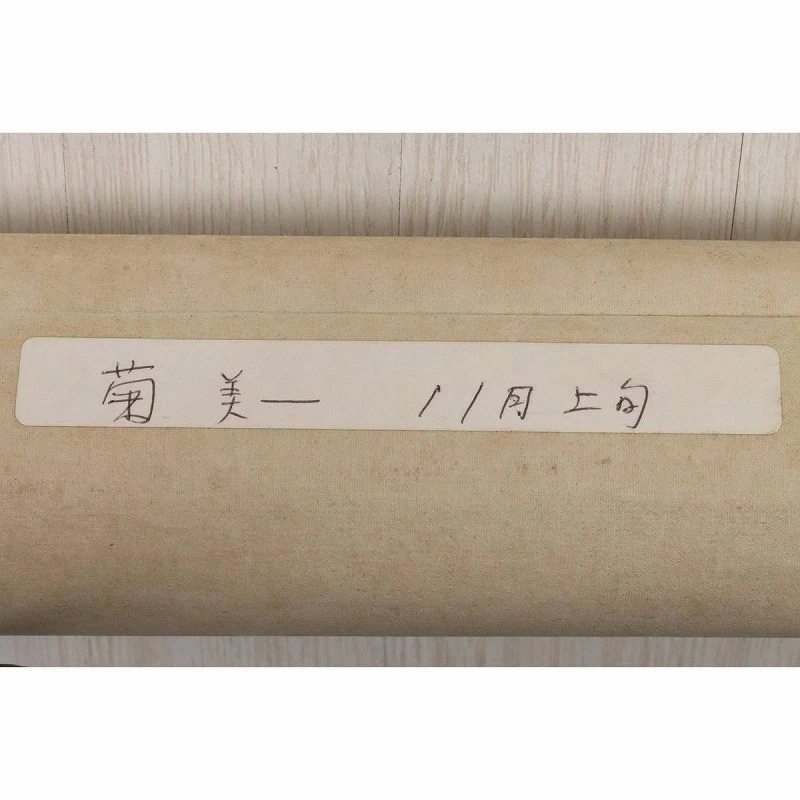 菊 美一 11月上旬